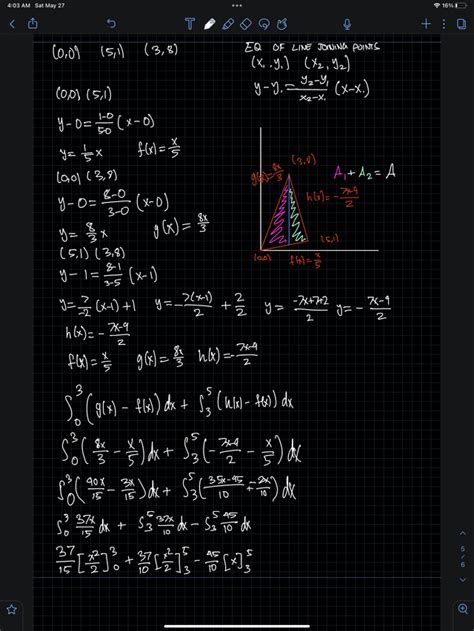 4:03 AM Sat May 27
16%
(0,0) (5,1) (3,8)
EQ OF LINE JOINING POINTS
(x₁,y₁) (x₂,y₂)
y-y₁ = y₂-y₁/x₂-x₁ (x-x₁)
(0,0) (5,1)
y-0 = 1-0/50 (x-0)
y = 1/5 x f(x) = x/5
(0,0) (3,8)
y-0 = 8-0/3-0 (x-0)
y = 8/3 x g(x) = 8x/3
g(x) = 8x/3
(3,8)
A₁ + A₂ = A
h(x) = -7x-9/2
(5,1)
(0,0)
f(x) = x/5
(5,1) (3,8)
y-1 = 8-1/3-5 (x-1)
y = 7/-2 (x-1)+1 y = -7(x-1)/2 + 2/2 y = -7x+7+2/2 y = -7x-9/2
h(x) = -7x-9/2
f(x) = x/5 g(x) = 8x/3 h(x) = -7x-9/2
∫₀³ (g(x) - f(x)) dx + ∫₃⁵ (h(x) - f(x)) dx
∫₀³ (8x/3 - x/5) dx + ∫₃⁵ (-7x-9/2 - x/5) dx
∫₀³ (40x/15 - 3x/15) dx + ∫₃⁵ (35x-45/10 + 2x/10) dx
∫₀³ 37x/15 dx + ∫₃⁵ 37x/10 dx - ∫₃⁵ 45/10 dx
37/15 [x²/2]₀³ + 37/10 [x²/2]₃⁵ - 45/10 [x]₃⁵
5
/
6